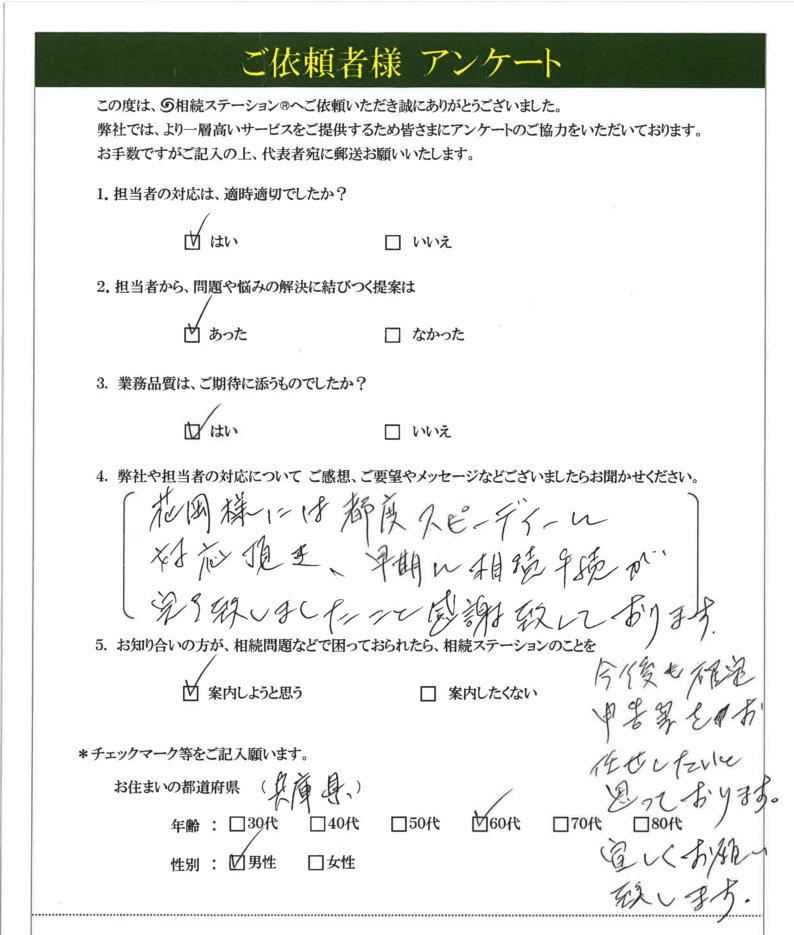 ご依頼者様 アンケート
この度は、相続ステーション®へご依頼いただき誠にありがとうございました。
弊社では、より一層高いサービスをご提供するため皆さまにアンケートのご協力をいただいております。
お手数ですがご記入の上、代表者宛に郵送お願いいたします。
1. 担当者の対応は、適時適切でしたか？
☑ はい　☐ いいえ
2. 担当者から、問題や悩みの解決に結びつく提案は
☑ あった　☐ なかった
3. 業務品質は、ご期待に添うものでしたか？
☑ はい　☐ いいえ
4. 弊社や担当者の対応について ご感想、ご要望やメッセージなどございましたらお聞かせください。
花岡様には都度スピーディーに
対応頂き、早期に相続手続が
完了致しましたこと感謝致しております。
5. お知り合いの方が、相続問題などで困っておられたら、相続ステーションのことを
☑ 案内しようと思う　☐ 案内したくない
今後も確定
申告等をお
任せしたいと
思っております。
宜しくお願い
致します。
＊チェックマーク等をご記入願います。
お住まいの都道府県 （兵庫県）
年齢 ： ☐30代 ☐40代 ☐50代 ☑60代 ☐70代 ☐80代
性別 ： ☑男性 ☐女性